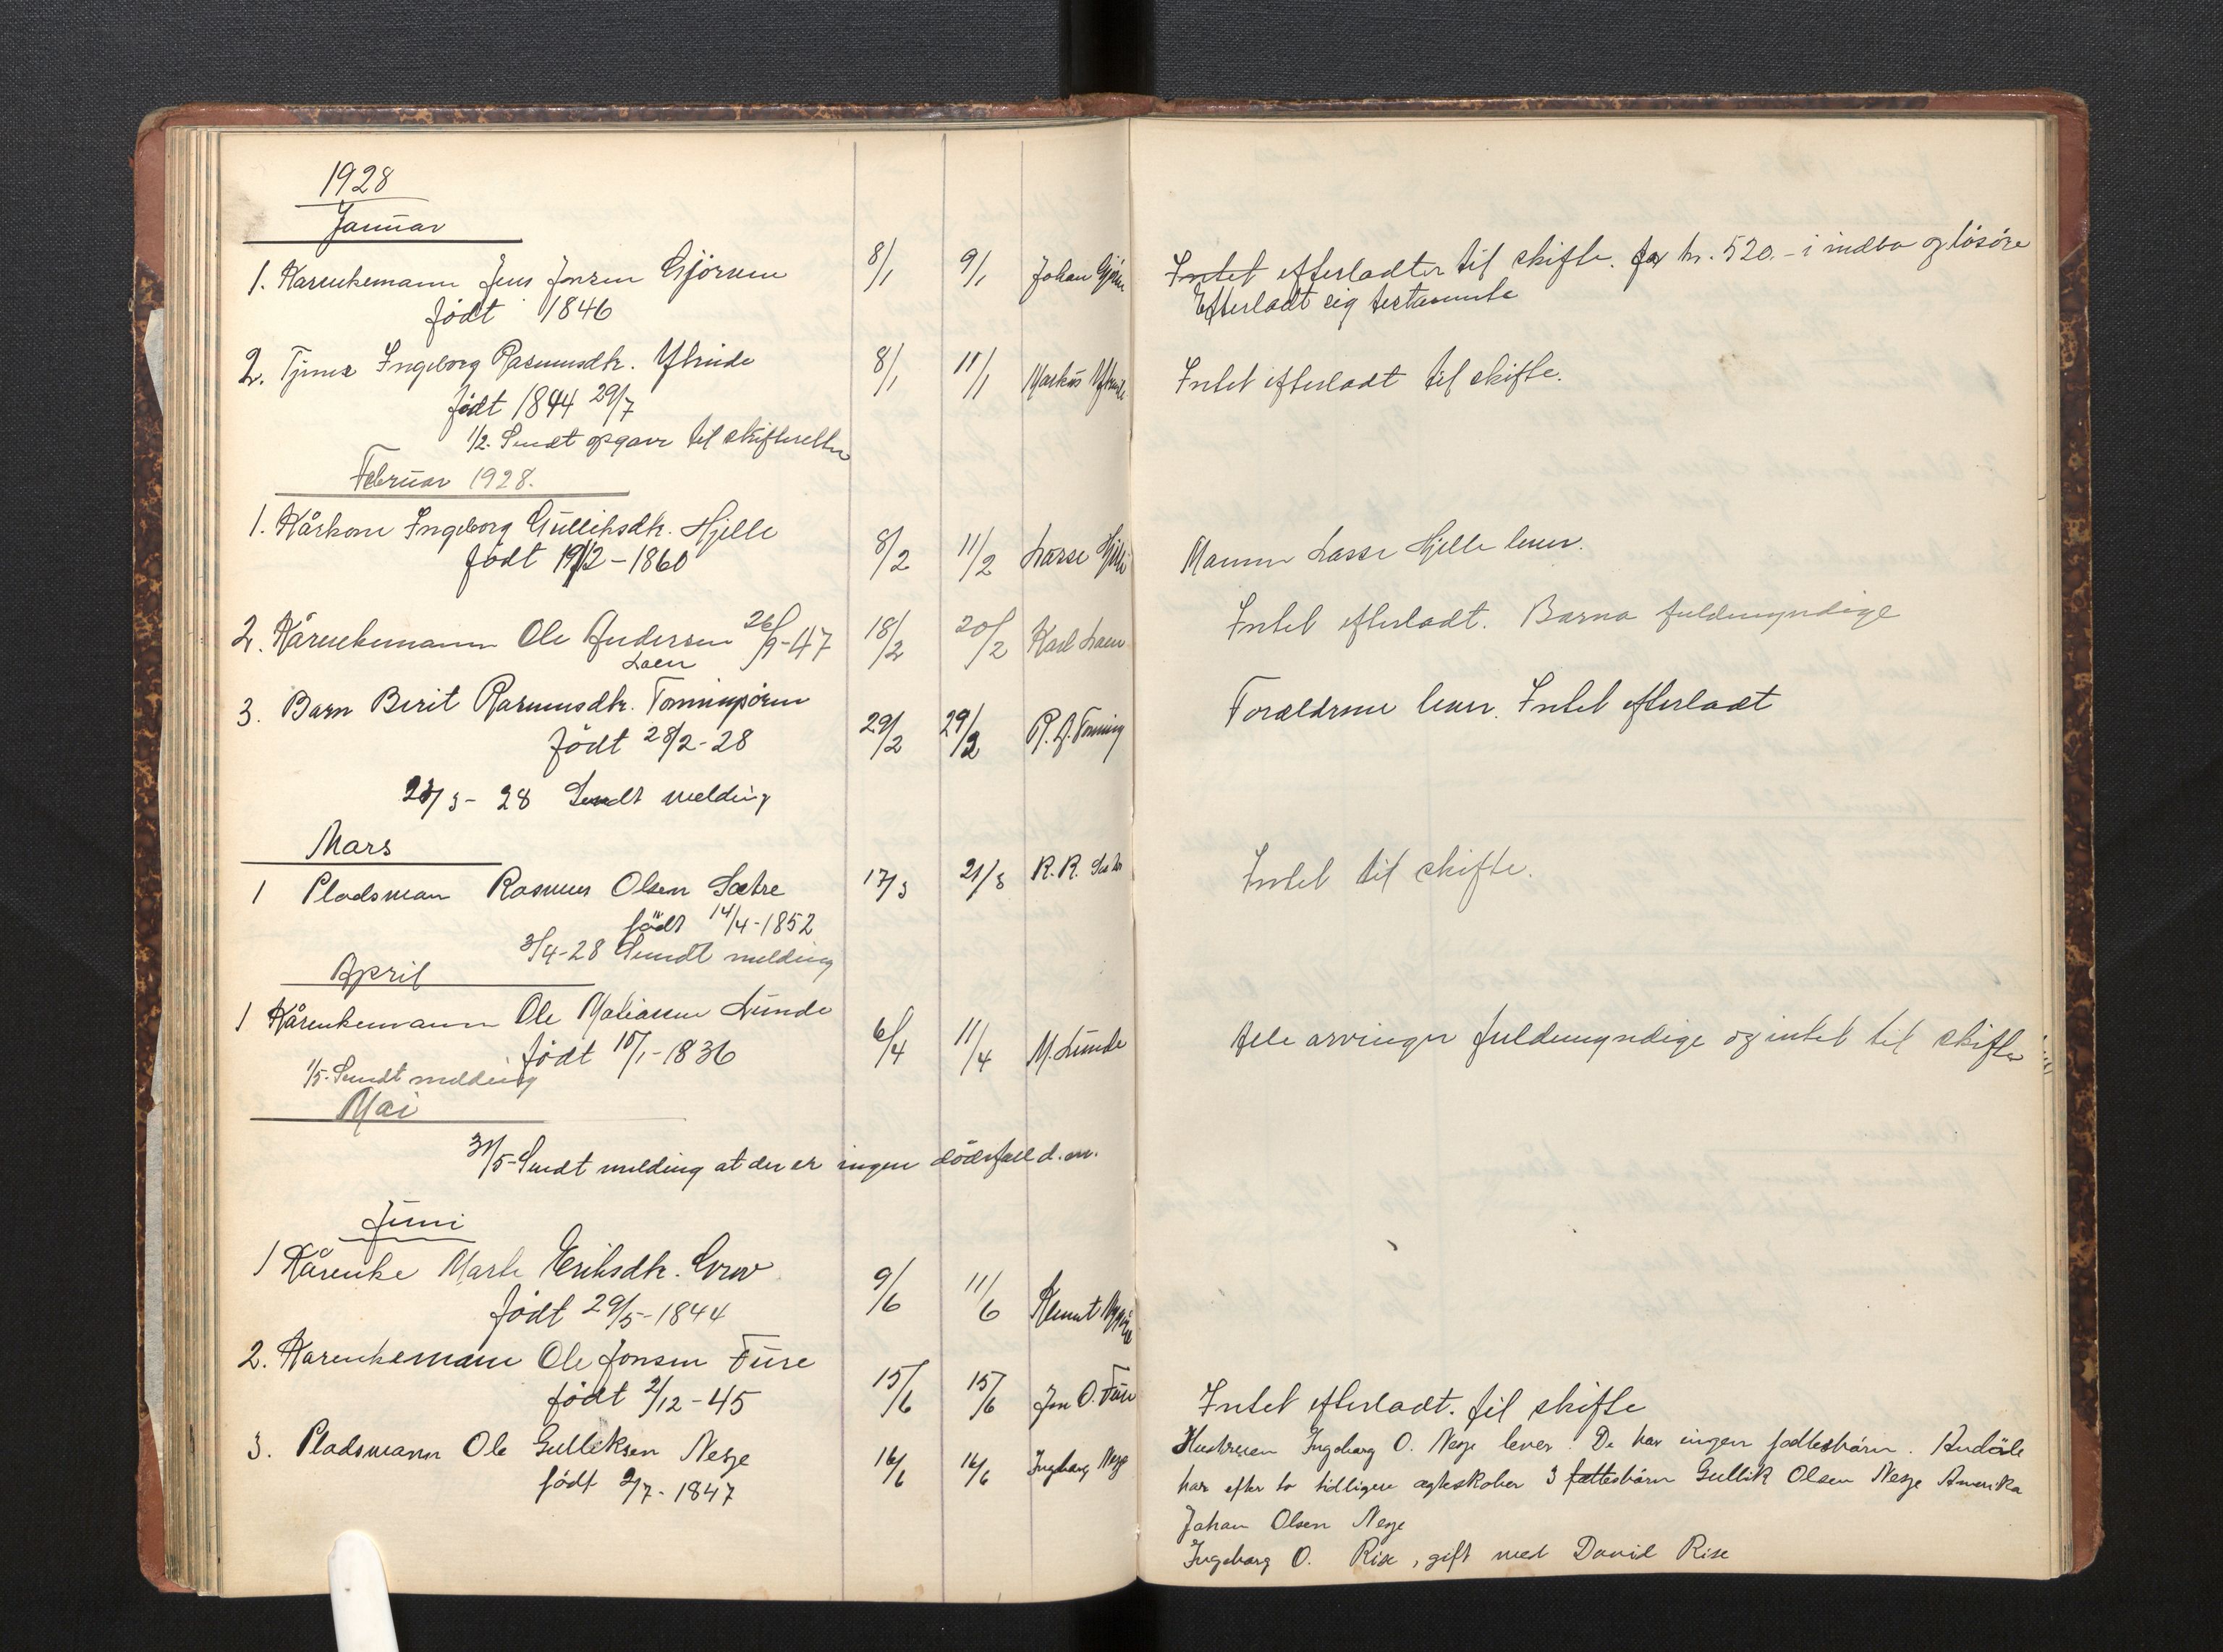 1928
Januar
1. Karenkemann Jens Jonsen Gjörven 8/1 9/1 Johan Gjörv Intet efterladter til skifte. for kr. 520.- i indbo og lösöre
født 1846 Efterladt sig testamente
2. Tjener Ingeborg Rasmusdtr. Ytreide 8/1 11/1 Markus Ytreide Intet efterladt til skifte.
født 1844 29/7
1/2. Sendt opgave til skifteretten
Februar 1928.
1. Kårkone Ingeborg Gulliksdtr. Hjelle 8/2 11/2 Lasse Hjelle Mannen Lasse Hjelle lever.
født 19/12-1860
2. Kårenkemann Ole Andersen 26/9-47 18/2 20/2 Karl Loen Intet efterladt. Barna fuldmyndige
Loen
3. Barn Berit Rasmusdtr. 29/2 29/2 R. A. Tonning Forældrene lever. Intet efterladt
født 28/2-28
/3-28 Sendt melding
Mars
1 Pladsman Rasmus Olsen Sætre 17/3 21/3 R. R. Intet til skifte.
født 14/4-1852
3/4-28 Sendt melding
April
1 Kårenkemann Ole Matiassen Lunde 6/4 11/4 M. Lunde Alle arvinger fuldmyndige og intet til skifte
født /1-1836
1/5. Sendt melding
Mai
31/5-Sendt melding at der er ingen dödsfall d. m.
Juni
1 Kårenke Marte Eriksdtr. Grov 9/6 11/6
født 29/5-1844
2. Karenkemann Ole Jonsen Fure 15/6 15/6 Jon O. Fure Intet efterladt. til skifte
født 2/12-45
3. Pladsmann Ole Gulliksen Nesje 16/6 16/6 Ingeborg Nesje Hustruen Ingeborg O. Nesje lever. De har ingen fællesbörn. Avdöde
født 2/7-1847 har efter to tidligere ægteskaber 3 fællesbörn Gullik Olsen Nesje Amerika
Johan Olsen Nesje
Ingeborg O. Rise, gift med David Rise